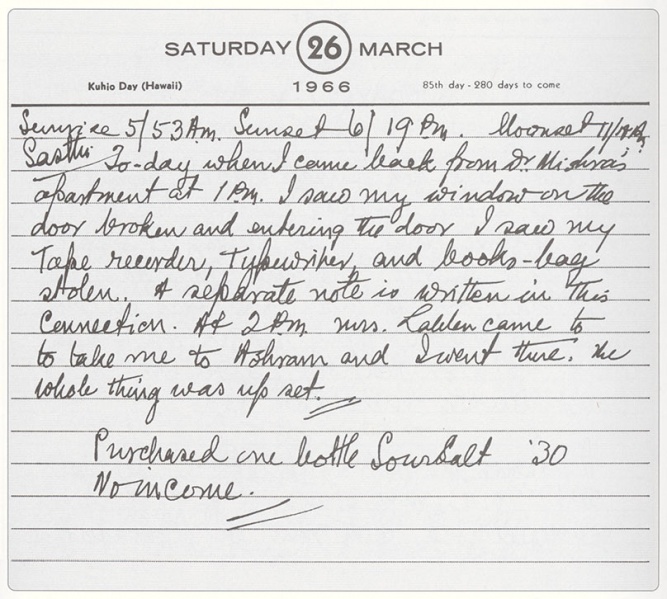 SATURDAY 26 MARCH
Kuhio Day (Hawaii) 1966 85th day - 280 days to come
Sunrise 5/53 A.m. Sunset 6/19 P.m. Moonset 11/
Sasthi To-day when I came back from Dr. Mishra's
apartment at 1 P.M. I saw my window on the
door broken and entering the door I saw my
Tape recorder, Typewriter, and books-bag
stolen. A separate note is written in this
Connection. At 2 P.m. mrs. came to
to take me to Ashram and I went there. The
whole thing was up set.
Purchased one bottle SourSalt '30
No income.